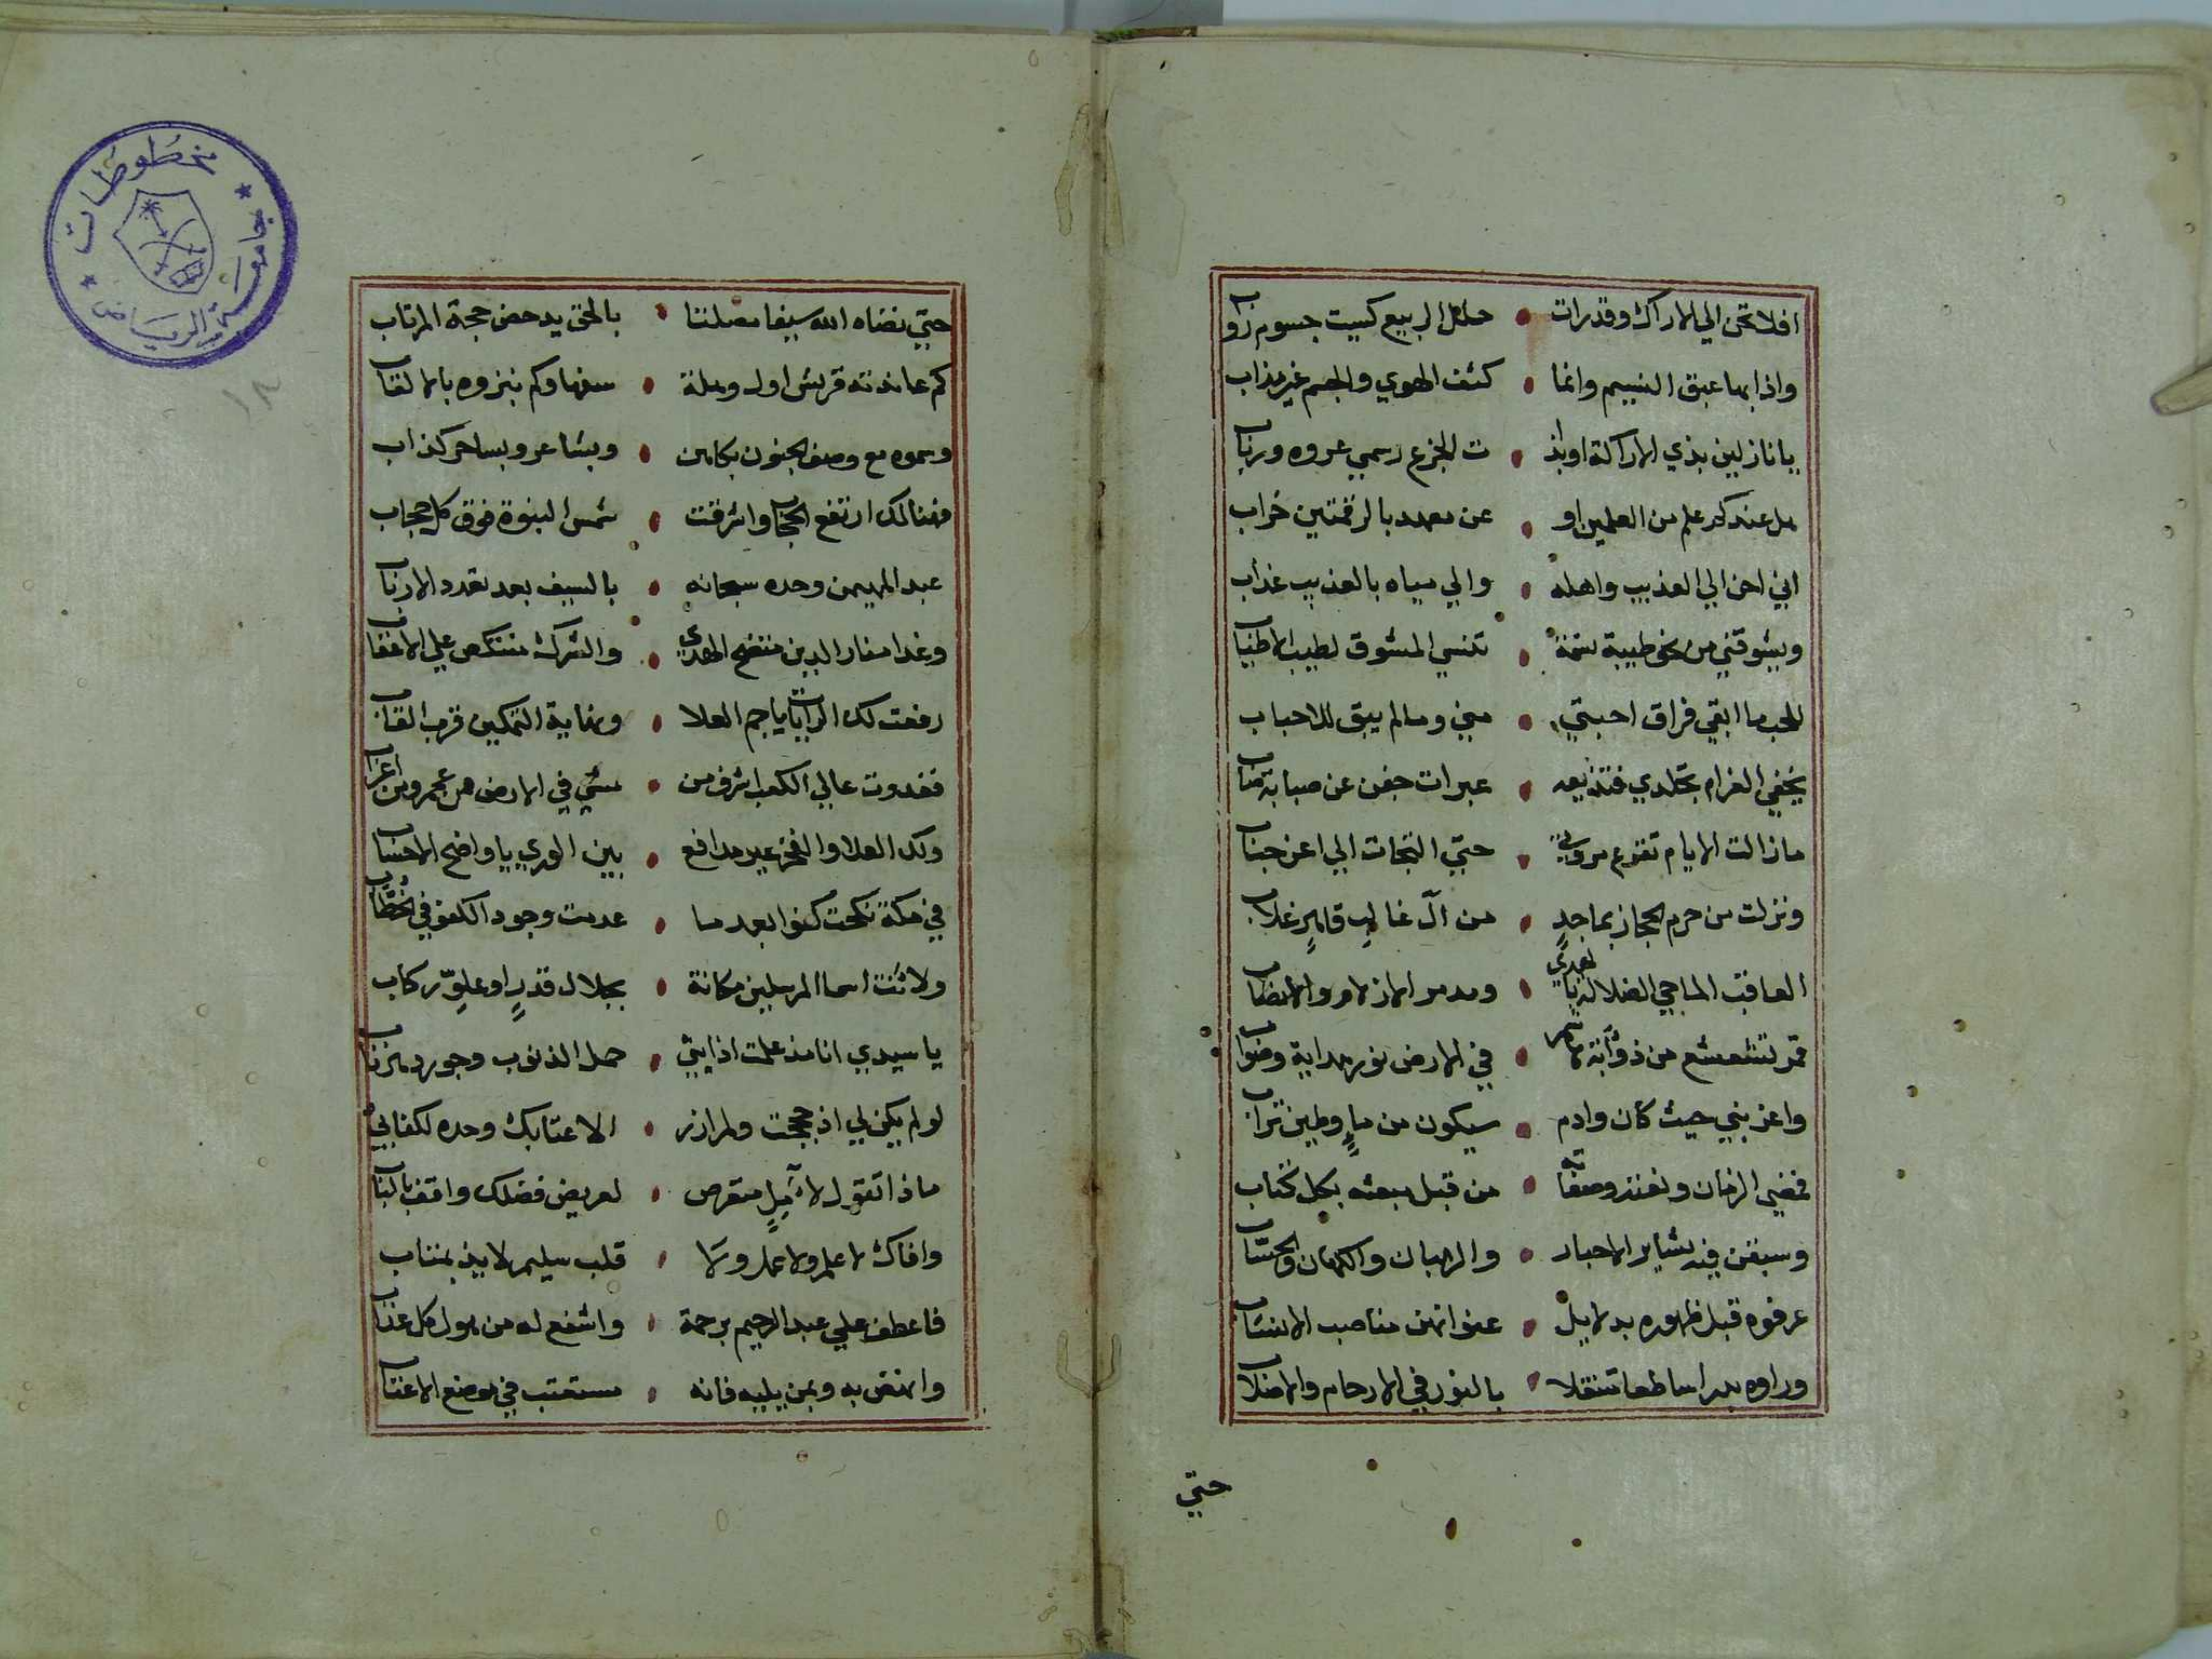 افلا تحن الي الاراك وقد رات • حلل الربيع كسيت جسوم رواب
واذا بها عبق النسيم وانما • كثف الهوي والجسم غير مذاب
يا نازلين بذي الاراكة او بذا • ت الجزع رسمي عروه ورباب
هل عندكم علم من العلمين او • عن معهد بالرقمتين خراب
اني احن الي العذيب واهله • والي مياه بالعذيب عذاب
ويشوقني من نحو طيبة نسمة • تنسي المشوق لطيب الاطياب
للحب ما ابقي فراق احبتي • مني وما لم يبق للاحباب
يخفي الغرام تجلدي فتذيعه • عبرات جفن عن صبابة صاب
ما زالت الايام تقرع مروتي • حتي التجات الي اعز جناب
ونزلت من حرم الحجاز بماجدٍ • من آل غالبٍ قاهرٍ غلاب
العاقب الماحي الضلالة بالهدي • ومدمر الازلام والانصاب
قمر تشعشع من ذوأبة هاشم • في الارض نور هداية وصواب
واعز بني حيث كان وادم • سيكون من ماءٍ وطين تراب
فمضي الزمان ونعته وصفاته • من قبل مبعثه بكل كتاب
وسبقن فيه بشاير الاحبار • والرهبان والكهان والحساب
عرفوه قبل ظهوره بدلايل • عنوانهن مناصب الانساب
وراوه بدرا ساطعا متنقلا • بالنور في الارحام والاصلاب
حتي
حتي نضاه الله سيفا مصلتا • بالحق يدحض حجة المرتاب
كم عاندته قريش اول وهلة • سفها وكم نبزوه بالالقاب
وسموه مع وصف الجنون بكاهن • وبشاعر وبساحر كذاب
فهنالك ارتفع الحجاب واشرقت • شمس النبوة فوق كل حجاب
عبد المهيمن وحده سبحانه • بالسيف بعد تعدد الارباب
وغدا منار الدين متضح الهدي • والشرك منتكص علي الاعقاب
رفعت لك الرايات يا جم العلا • ونهاية التمكين قرب القاب
فغدوت عالي الكعب اشرف من • مشي في الارض من عجم ومن اعراب
ولك العلا والفخر غير مدافع • بين الوري يا واضح الاحساب
في مكة نكحت كفوا بعد ما • عدمت وجود الكفو في الخُطّاب
ولانت اسما المرسلين مكانة • بجلال قدرٍ او علوّ ركاب
يا سيدي انا مذ علمت اذا يبتي • حمل الذنوب وجور دهر ناب
لو لم يكن لي اذ حججت ولم ازر • الا عتابك وحده لكفابي
ماذا تقول لآملٍ متعرض • لعريض فضلك واقف بالباب
وافاك لا علم ولا عمل ولا • قلب سليم لايذ بمتاب
فاعطف علي عبد الرحيم برحمة • واشفع له من هول كل عذاب
وانهض به وبمن يليه فانه • مستعتب في موضع الاعتاب
مخطوطات
جامعة الرياض
١٨